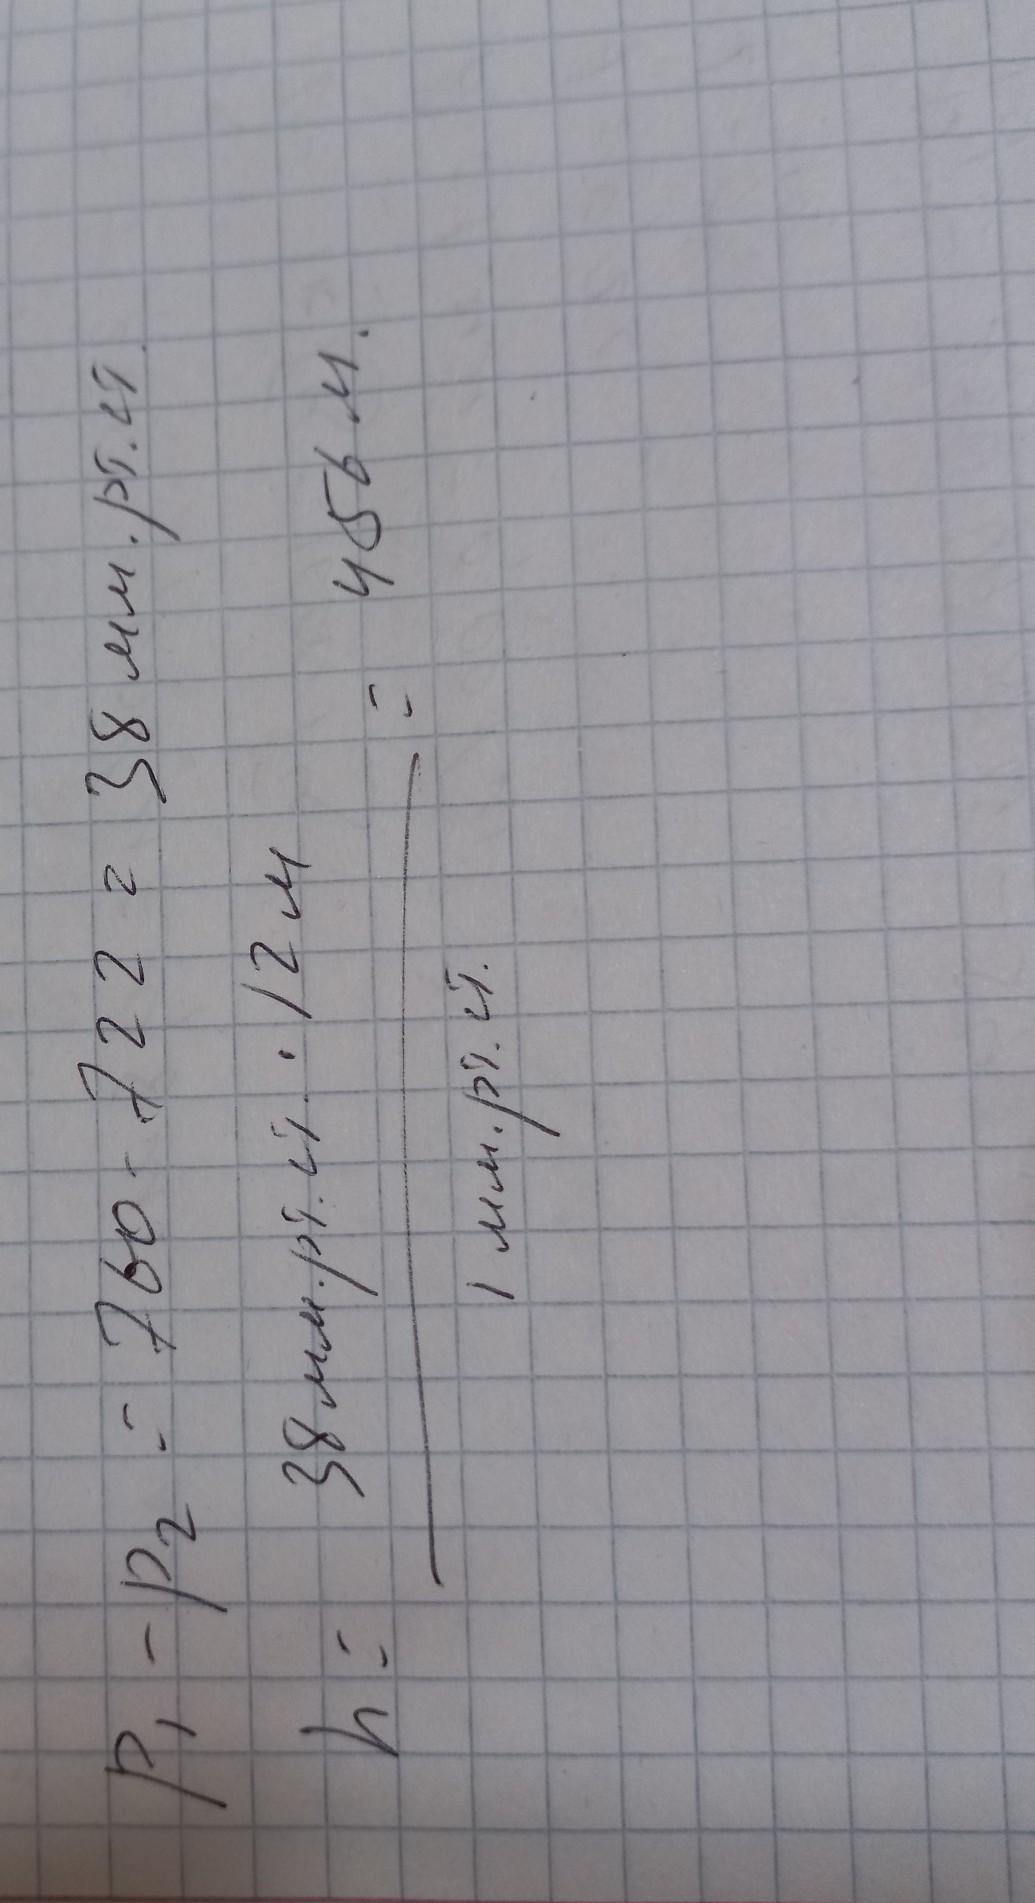 p₁ - p₂ = 760 - 722 = 38 мм.рт.ст.
h = 38 мм.рт.ст. · 12 м = 456 м.
1 мм.рт.ст.